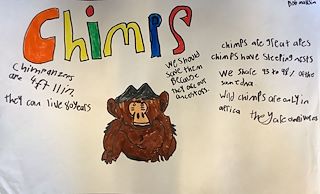 Chimps
Chimpanzees
are 4ft 11in.
they can live 60 years
we should
save them
because
they are our
ancestors.
chimps are great apes
chimps have sleeping nests
we share 95 to 98% of the
same dna
Wild chimps are only in
africa
they are omnivores